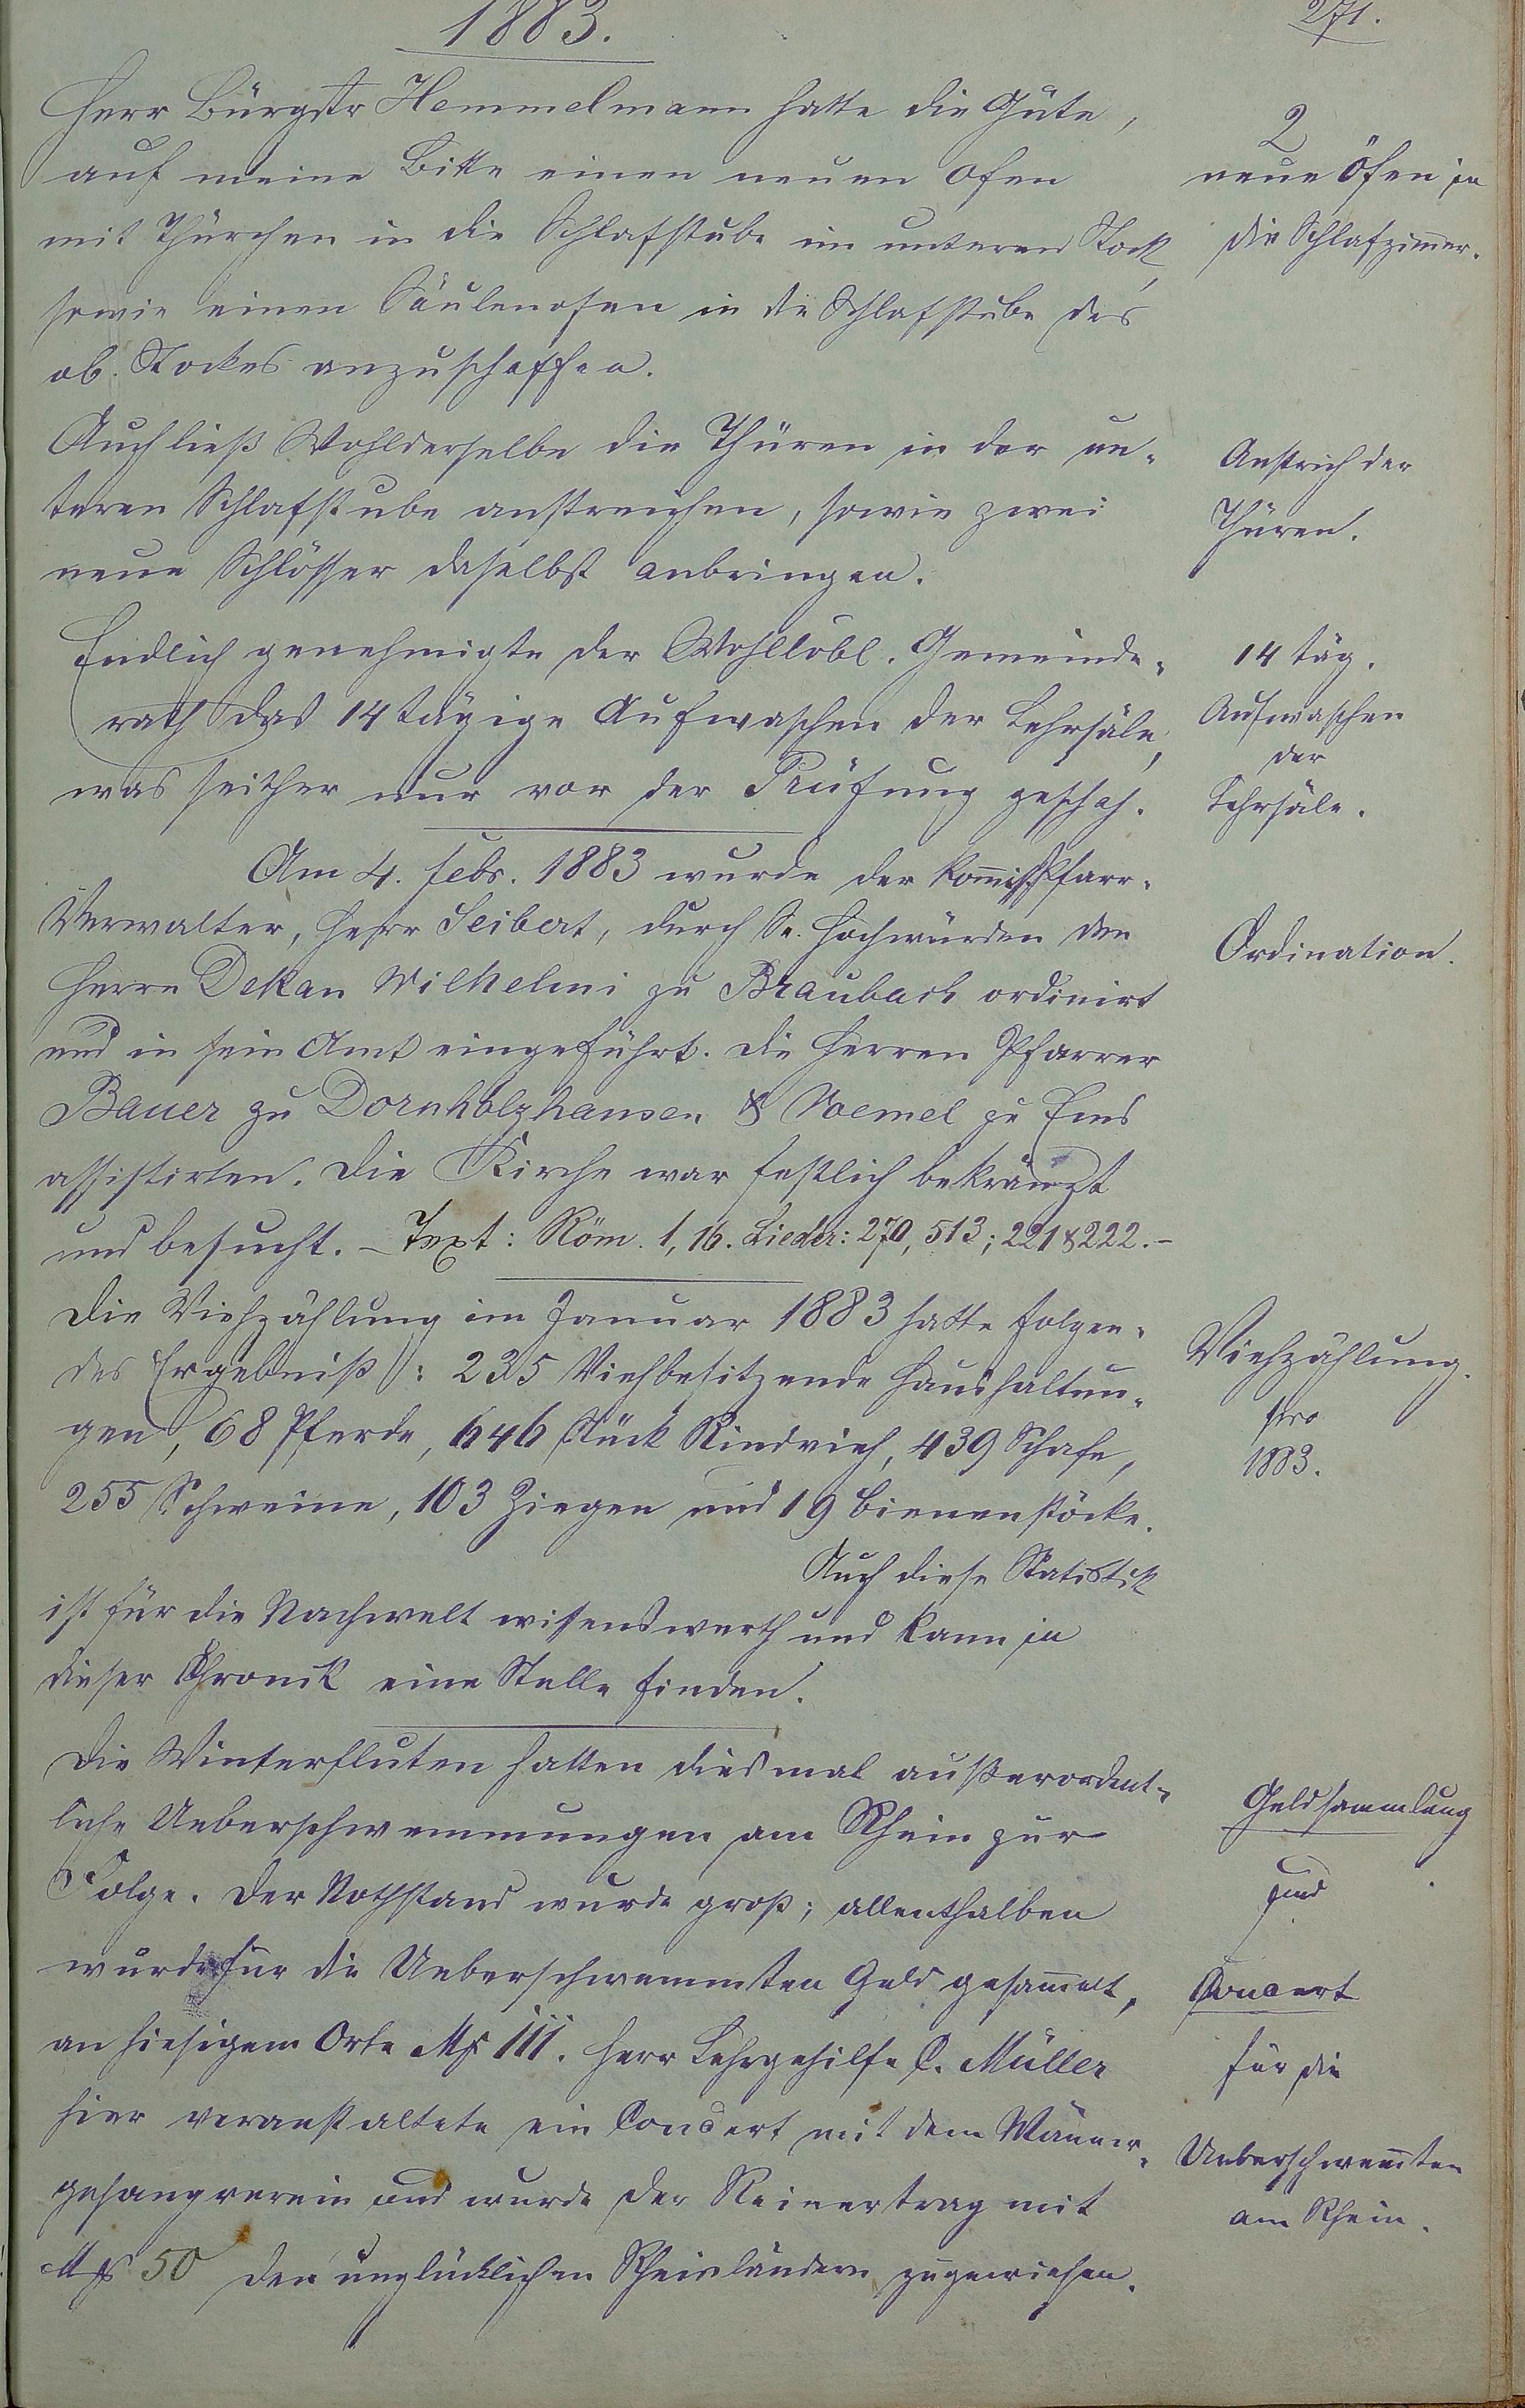 1883.
271.
Herr Bürgstr Hemmelmann hatte die Güte,
auf meine Bitte einen neuen Ofen
mit Thürchen in die Schlafstube im unteren Stock,
sowie einen Säulenofen in die Schlafstube des
ob. Stockes anzuschaffen.
2
neue Öfen in
die Schlafzimer.
Auch ließ Wohlderselbe die Thüren in der un-
teren Schlafstube anstreichen, sowie zwei
neue Schlösser daselbst anbringen.
Anstrich der
Thüren.
Endlich genehmigte der Wohllöbl. Gemeinde-
rath das 14 tägige Aufwaschen der Lehrsäle,
was seither nur vor der Prüfung geschah.
14 täg.
Aufwaschen
der
Lehrsäle.
Am 4. Febr. 1883 wurde der Komiss. Pfarr-
Verwalter, Herr Seibert, durch Se. Hochwürden den
Herrn Dekan Wilhelmi zu Braubach ordinirt
und in sein Amt eingeführt. Die Herren Pfarrer
Bauer zu Dornholzhausen & Voemel zu Ems
assistirten. Die Kirche war festlich bekränzt
und besucht. – Text: Röm. 1, 16. Lieder: 270, 513; 221 & 222. –
Ordination.
Die Viehzählung im Januar 1883 hatte folgen-
des Ergebniß: 235 Viehbesitzende Haushaltun-
gen, 68 Pferde, 646 Stück Rindvieh, 439 Schafe,
255 Schweine, 103 Ziegen und 19 Bienenstöcke.
Auch diese Statistik
ist für die Nachwelt wissenswerth und kann in
dieser Chronik eine Stelle finden.
Viehzählung.
pro
1883.
Die Winterfluten hatten diesmal außerordent-
liche Ueberschwemmungen am Rhein zur
Folge. Der Nothstand wurde groß; allenthalben
wurde für die Ueberschwemmten Geld gesamelt,
an hiesigem Orte Mk 111. Herr Lehrgehilfe C. Müller
hier veranstaltete ein Concert mit dem Männer-
gesangverein und wurde der Reinertrag mit
Mk 50 den unglücklichen Rheinländern zugewiesen.
Geldsammlung
und
Concert
für die
Ueberschwemten
am Rhein.